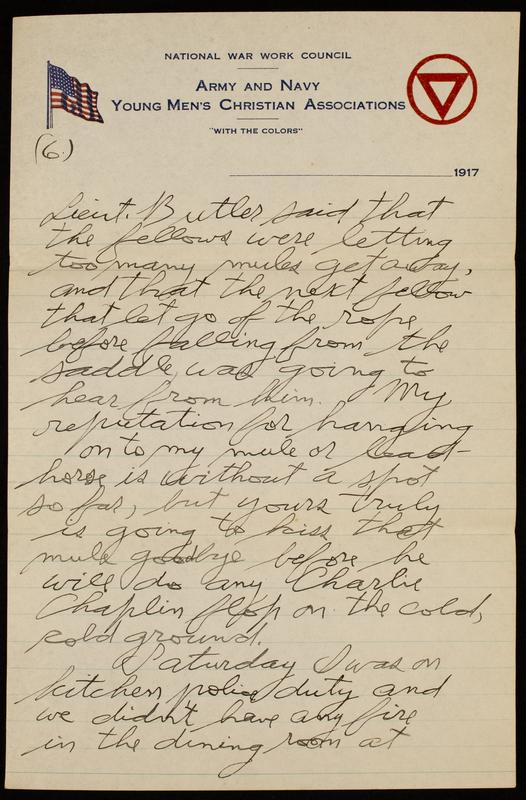 NATIONAL WAR WORK COUNCIL
ARMY AND NAVY
YOUNG MEN'S CHRISTIAN ASSOCIATIONS
"WITH THE COLORS"
(6.)
1917
Lieut. Butler said that
the fellows were letting
too many mules get away,
and that the next fellow
that let go of the rope
before falling from the
saddle was going to
hear from him. My
reputation for hanging
on to my mule or lead-
horse is without a spot
so far, but yours truly
is going to kiss that
mule goodbye before he
will do any Charlie
Chaplin flop on the cold,
cold ground.
Saturday I was on
kitchen police duty and
we didn't have any fire
in the dining room at